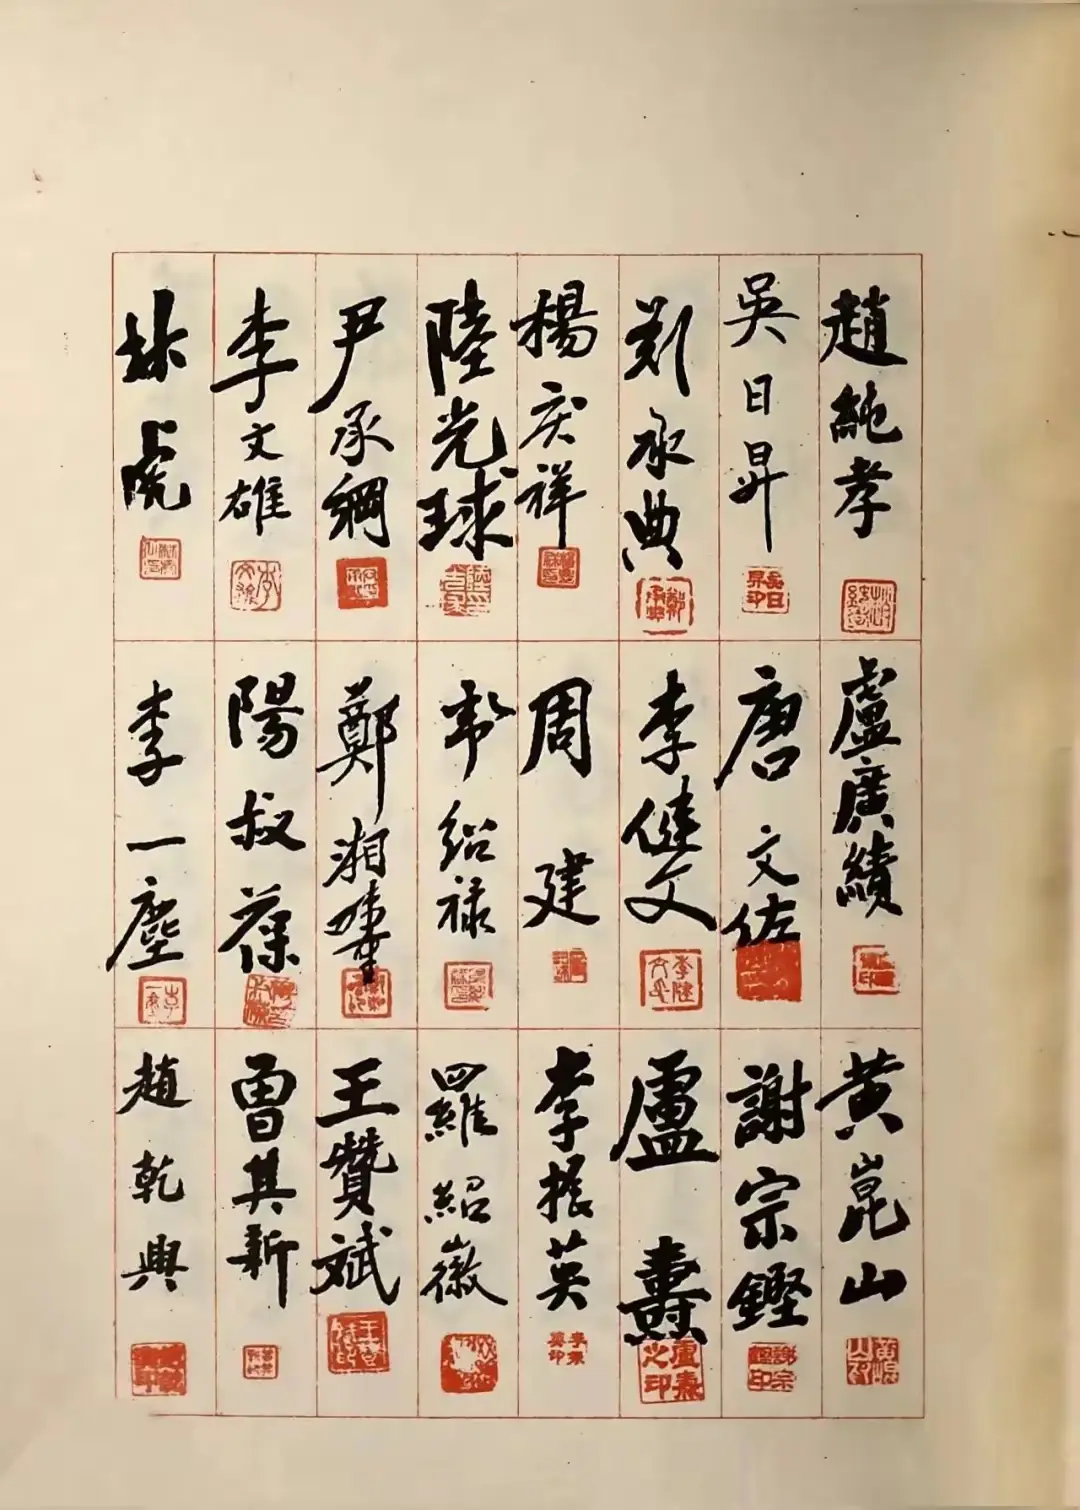 趙純孝
吳日昇
鄭承典
楊庆祥
陸光球
尹承綱
李文雄
林虎
盧廣績
唐文佐
李健文
周建
韦绍禄
鄭湘疇
陽叔葆
李一塵
黃崑山
謝宗鏗
盧燾
李振英
羅紹徽
王贊斌
曾其新
趙乾興